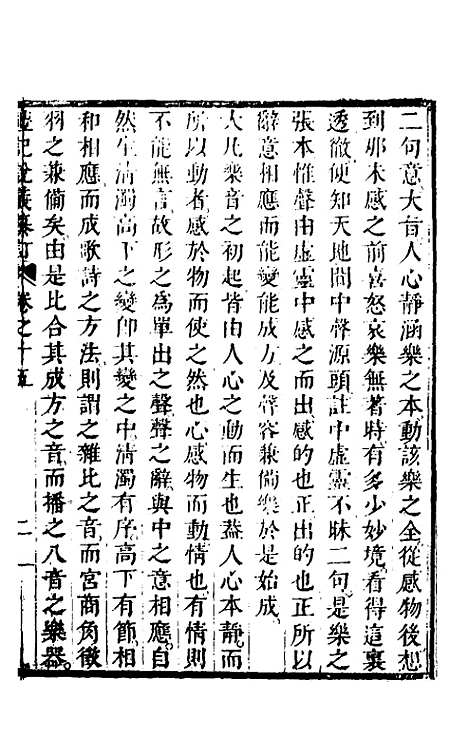 二句意大旨人心靜涵樂之本動該樂之全從感物後想
到那未感之前喜怒哀樂無著時有多少妙境看得這裏
透徹便知天地間中聲源頭註中虛靈不昧二句是樂之
張本惟聲由虛靈中感之而出感的也正出的也正所以
辭意相應而能變能成方及聲容兼備樂於是始成
大凡樂音之初起皆由人心之動而生也蓋人心本靜而
所以動者感於物而使之然也心感於物而動情也有情則
不能無言故形之為單出之聲聲之辭與中之意相應自
然生清濁高下之變卽其變之中清濁有序高下有節相
和相應而成歌詩之方法則謂之雜比之音而宮商角徵
羽之兼備矣由是比合其成方之音而播之八音之樂器
禮記 卷之十五 二